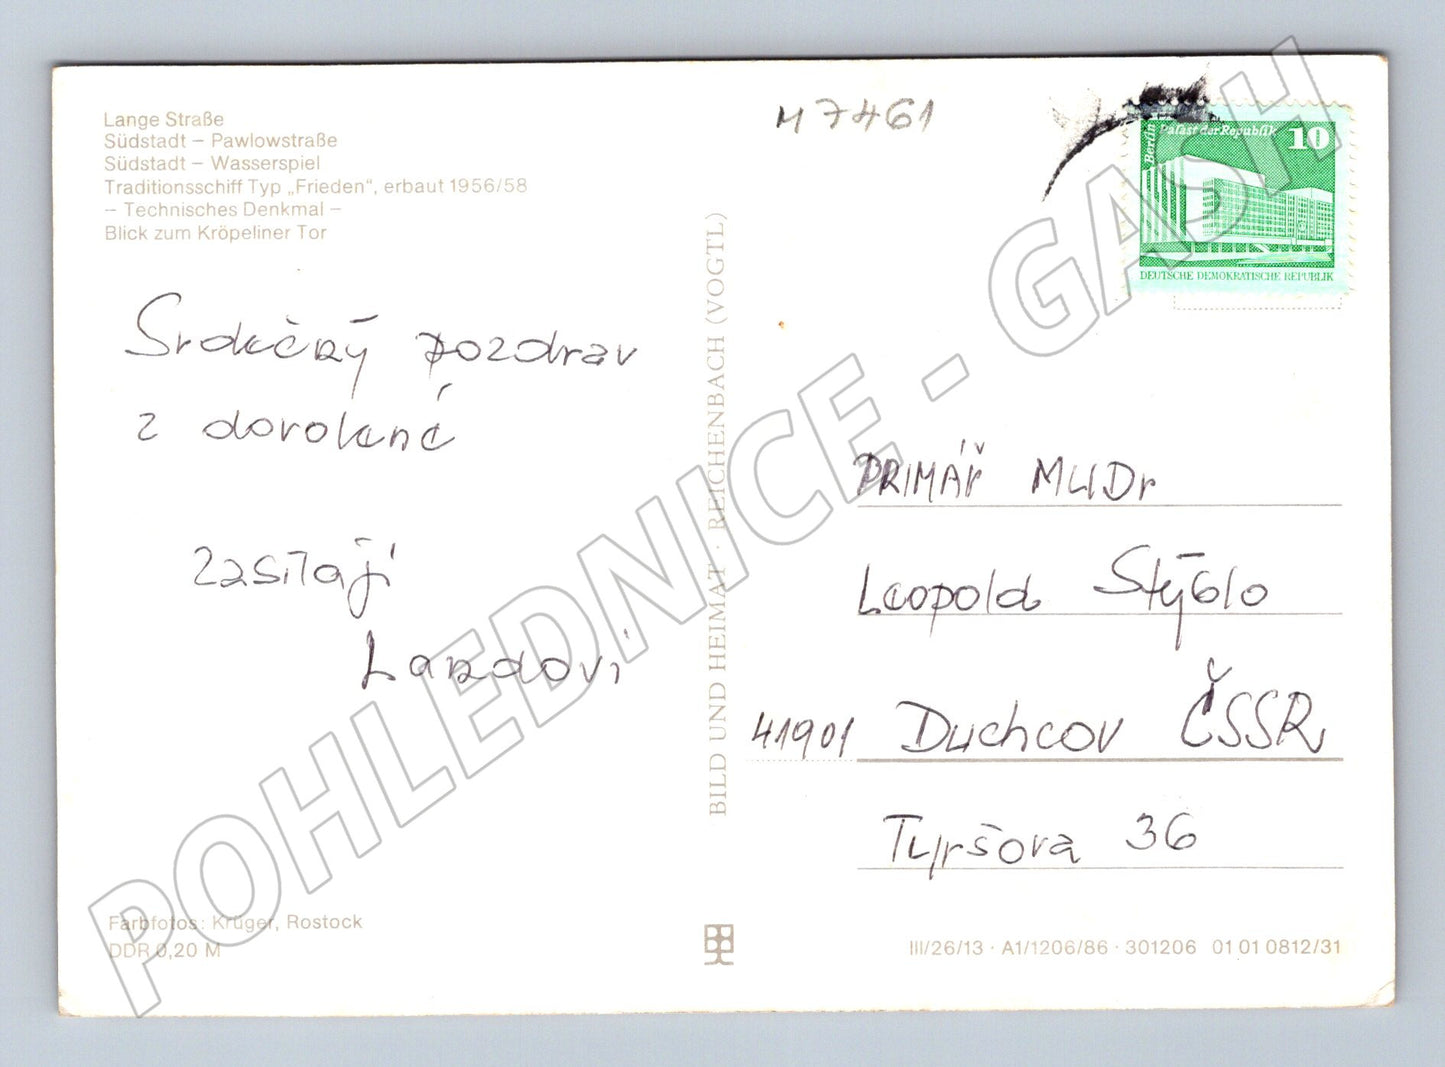 Lange Straße
Südstadt – Pawlowstraße
Südstadt – Wasserspiel
Traditionsschiff Typ „Frieden“, erbaut 1956/58
– Technisches Denkmal –
Blick zum Kröpeliner Tor
M 7461
Berlin
Palast der Republik
10
DEUTSCHE DEMOKRATISCHE REPUBLIK
Srdečný pozdrav
z dovolené
zasílají
Landovi
BILD UND HEIMAT · REICHENBACH (VOGTL)
PRIMÁŘ MUDr
Leopold Stýblo
41901 Duchcov ČSSR
Tyršova 36
Farbfotos: Krüger, Rostock
DDR 0,20 M
III/26/13 · A1/1206/86 · 301206 01 01 0812/31
POHLEDNICE - GASH